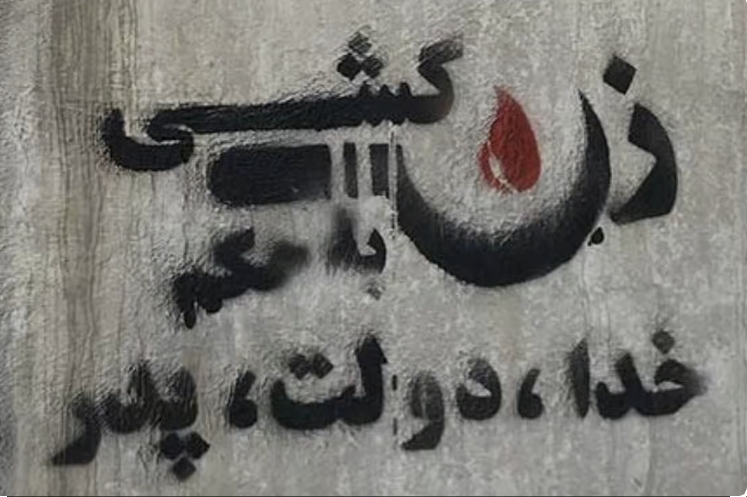 زن کشی
با حکم
خدا، دولت، پدر